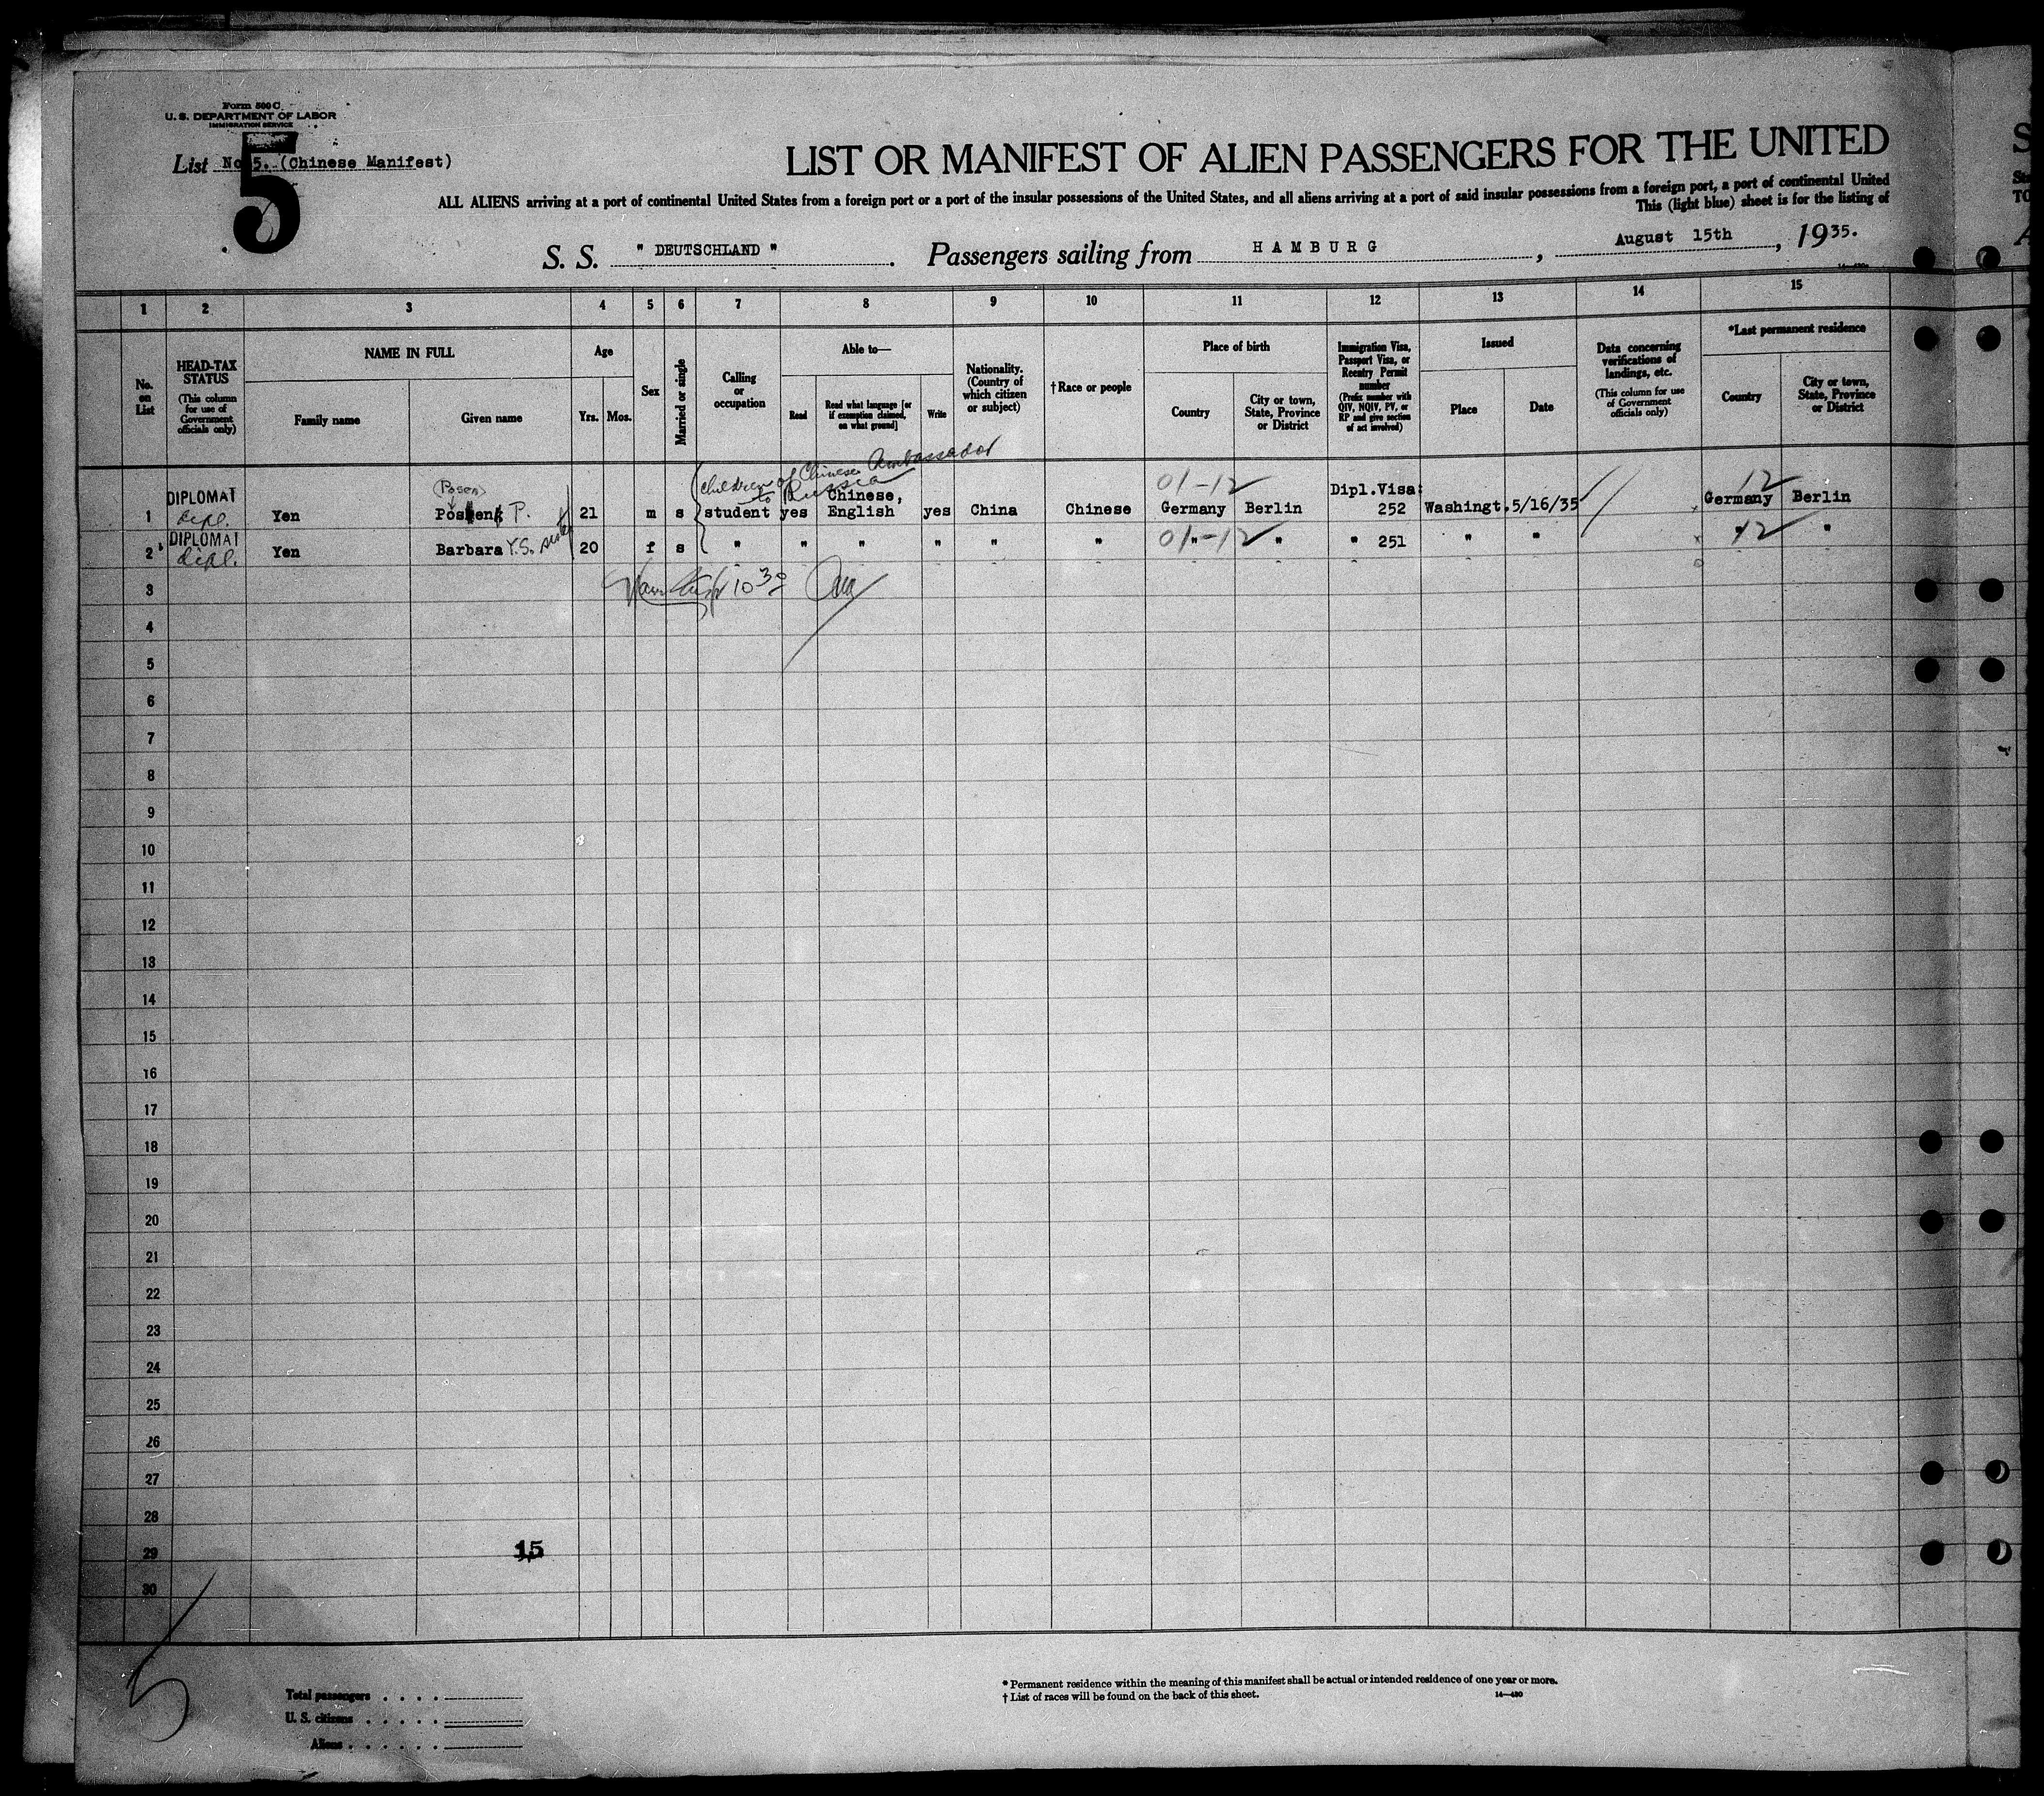 Form 500 C
U. S. DEPARTMENT OF LABOR
IMMIGRATION SERVICE
List No. 5. (Chinese Manifest)
5
LIST OR MANIFEST OF ALIEN PASSENGERS FOR THE UNITED
ALL ALIENS arriving at a port of continental United States from a foreign port or a port of the insular possessions of the United States, and all aliens arriving at a port of said insular possessions from a foreign port, a port of continental United
This (light blue) sheet is for the listing of
S. S. " DEUTSCHLAND " . Passengers sailing from HAMBURG , August 15th , 1935.
1 2 3 4 5 6 7 8 9 10 11 12 13 14 15
No. on List
HEAD-TAX STATUS
(This column for use of Government officials only)
NAME IN FULL
Family name
Given name
Age
Yrs. Mos.
Sex
Married or single
Calling or occupation
Able to—
Read
Read what language [or if exemption claimed, on what ground]
Write
Nationality. (Country of which citizen or subject)
†Race or people
Place of birth
Country
City or town, State, Province or District
Immigration Visa, Passport Visa, or Reentry Permit number
(Prefix number with QIV, NQIV, PV, or RP and give section of act involved)
Issued
Place
Date
Data concerning verifications of landings, etc.
(This column for use of Government officials only)
*Last permanent residence
Country
City or town, State, Province or District
children of Chinese Ambassador
to Russia
(Posen)
01-12
12
1 DIPLOMAT dipl. Yen P. 21 m s student yes Chinese, English yes China Chinese Germany Berlin Dipl.Visa: 252 Washingt. 5/16/35 Germany Berlin
2 DIPLOMAT dipl. Yen Barbara Y.S. sister 20 f s " " " " " " 01-12 " " " 251 " " 12 " "
10 30
3
4
5
6
7
8
9
10
11
12
13
14
15
16
17
18
19
20
21
22
23
24
25
26
27
28
29
15
30
5
Total passengers . . . .
U. S. citizens . . . . .
Aliens . . . . . .
* Permanent residence within the meaning of this manifest shall be actual or intended residence of one year or more.
† List of races will be found on the back of this sheet.
14—480